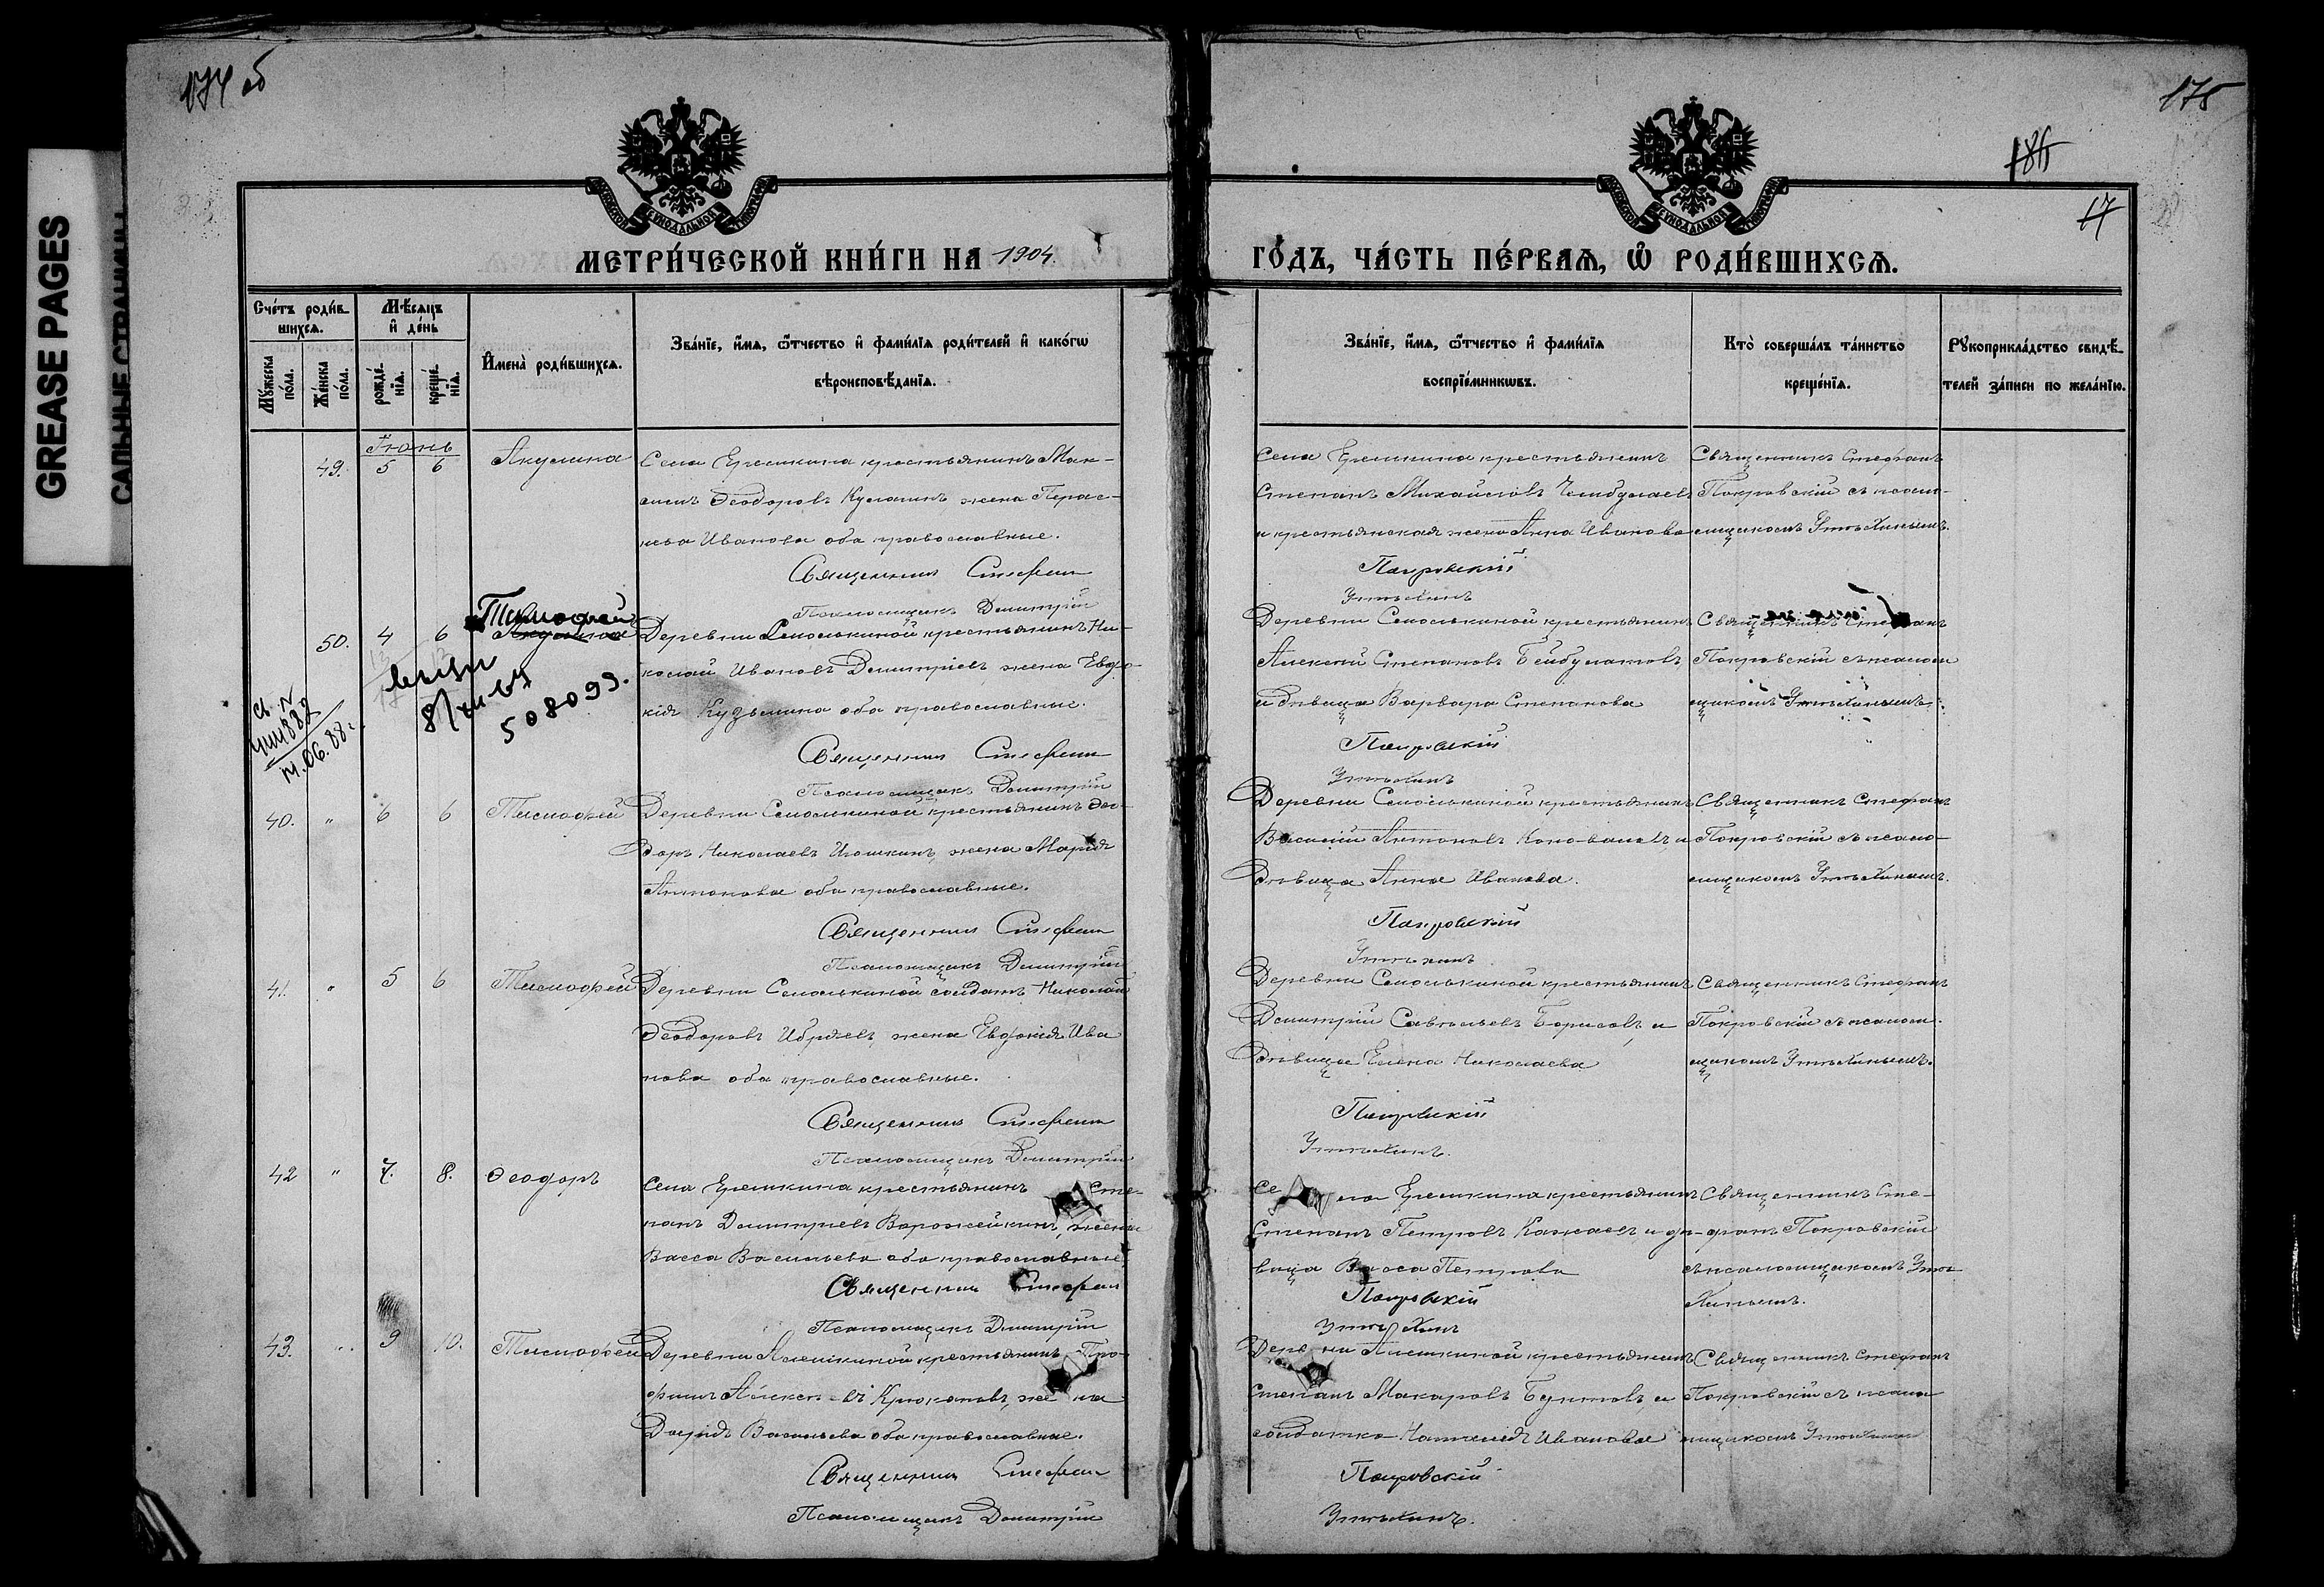 174 об
175
GREASE PAGES
САЛЬНЫЕ СТРАНИЦЫ
17
МЕТРИ́ЧЕСКОЙ КНИ́ГИ НА 1904.
ГО́ДЪ, ЧА́СТЬ ПЕ́РВАѦ, Ѽ РОДИ́ВШИХСѦ.
Сче́тъ роди́в-
шихсѧ.
Мꙋ́жеска по́ла.
Же́нска по́ла.
Мѣ́сѧцъ
и҆ де́нь
рожде́-
нїѧ.
креще́-
нїѧ.
И҆мена̀ роди́вшихсѧ.
Зва́нїе, и҆́мѧ, ѻ҆́тчество и҆ фами́лїѧ роди́телей и҆ како́гѡ
вѣроисповѣ́данїѧ.
Зва́нїе, и҆́мѧ, ѻ҆́тчество и҆ фами́лїѧ
воспрїе́мникѡвъ.
Кто̀ соверша́лъ та́инство
креще́нїѧ.
Рꙋкоприкла́дство свидѣ́-
телей за́писи по жела́нїю.
Іюнь
49. 5 6 Акулина
Села Еремкина крестьянинъ Мак-
симъ Ѳеодоровъ Кулагинъ жена Парас-
кева Иванова оба православные.
Священникъ Стефанъ
Псаломщикъ Димитрій
Села Еремкина крестьянинъ
Степанъ Михайловъ
и крестьянская жена Анна Иванова
Покровскій
Утѣхинъ
Священникъ Стефанъ
Покровскій съ псалом-
щикомъ Утѣхинымъ.
50. 4 6 Акулина
Тимофей
508099.
14.06.88г.
Деревни Смолькиной крестьянинъ Ни-
колай Ивановъ Димитріевъ, жена Евдо-
кія Кузьмина оба православные.
Священникъ Стефанъ
Псаломщикъ Димитрій
Деревни Смолькиной крестьянинъ
Алексѣй Степановъ Бейбулатовъ,
и дѣвица Варвара Степанова
Покровскій
Утѣхинъ
Священникъ Стефанъ
Покровскій съ псалом
щикомъ Утѣхинымъ.
40. " 6 6 Тимофей
Деревни Смолькиной крестьянинъ Ѳео-
доръ Николаевъ Игошкинъ, жена Марія
Антонова оба православные.
Священникъ Стефанъ
Псаломщикъ Димитрій
Деревни Смолькиной крестьянинъ
Василій Антоновъ Коноваловъ, и
дѣвица Анна Иванова.
Покровскій
Утѣхинъ
Священникъ Стефанъ
Покровскій съ псалом-
щикомъ Утѣхинымъ.
41. " 5 6 Тимофей
Деревни Смолькиной солдатъ Николай
Ѳеодоровъ Ибряевъ, жена Евдокія Ива
нова оба православные.
Священникъ Стефанъ
Псаломщикъ Димитрій
Деревни Смолькиной крестьянинъ
Димитрій Савельевъ Борисовъ, и
дѣвица Елена Николаева
Покровскій
Утѣхинъ.
Священникъ Стефанъ
Покровскій съ псалом-
щикомъ Утѣхинымъ.
42 " 7. 8. Ѳеодоръ
Села Еремкина крестьянинъ Сте-
панъ Димитріевъ Ворожейкинъ, жена
Васса Васильева оба православные
Священникъ Стефанъ
Псаломщикъ Димитрій
Села Еремкина крестьянинъ
Степанъ Петровъ Кажаевъ и дѣ-
вица Васса Петрова
Покровскій
Утѣхинъ
Священникъ Сте-
фанъ Покровскій
съ псаломщикомъ Утѣ
хинымъ.
43. " 9 10. Тимофей
Деревни Алешкиной крестьянинъ Тро-
фимъ Алексѣевъ Крюковъ, жена
Дарія Васильева оба православные.
Священникъ Стефанъ
Псаломщикъ Димитрій
Деревни Алешкиной крестьянинъ
Степанъ Макаровъ Бунтовъ, и
солдатка Наталія Иванова
Покровскій
Утѣхинъ.
Священникъ Стефанъ
Покровскій съ псалом
щикомъ Утѣхинымъ